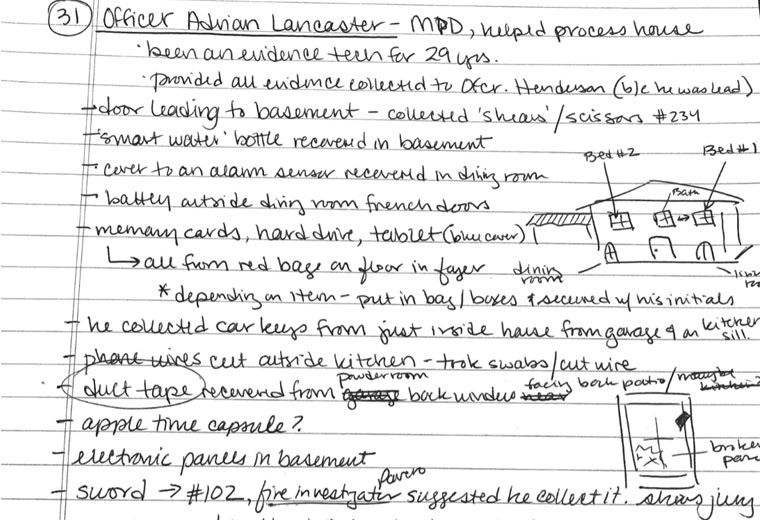 31 Officer Adrian Lancaster - MPD, helped process house
· been an evidence tech for 29 yrs.
· provided all evidence collected to Ofcr. Henderson (b/c he was lead)
→ door leading to basement - collected 'shears'/scissors #234
- 'smart water' bottle recovered in basement
- cover to an alarm sensor recovered in dining room
Bed #2
Bed #1
Bath
- battery outside dining room french doors
- memory cards, hard drive, tablet (blue cover)
↳ all from red bags on floor in foyer
dining room
* depending on item - put in bag/boxes & secured w/ his initials
- he collected car keys from just inside house from garage & on kitchen sill.
- phone wires cut outside kitchen - took swabs/cut wire
- duct tape recovered from garage powder room back window near facing back patio/maybe kitchen
- apple time capsule?
- electronic panels in basement
broken pane
- sword → #102, fire investigator Pavero suggested he collect it. shows jury